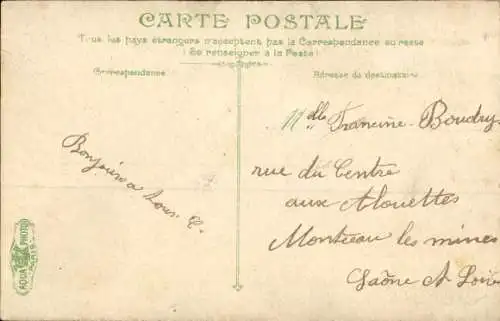 CARTE POSTALE
Tous les pays étrangers n'acceptent pas la Correspondance au recto
(Se renseigner à la Poste)
Correspondance
Adresse du destinataire
Mdlle Francine Boudry
rue du Centre
aux Alouettes
Montceau les mines
Saône et Loire
Bonjour a tous
AQUA PHOTO
PARIS